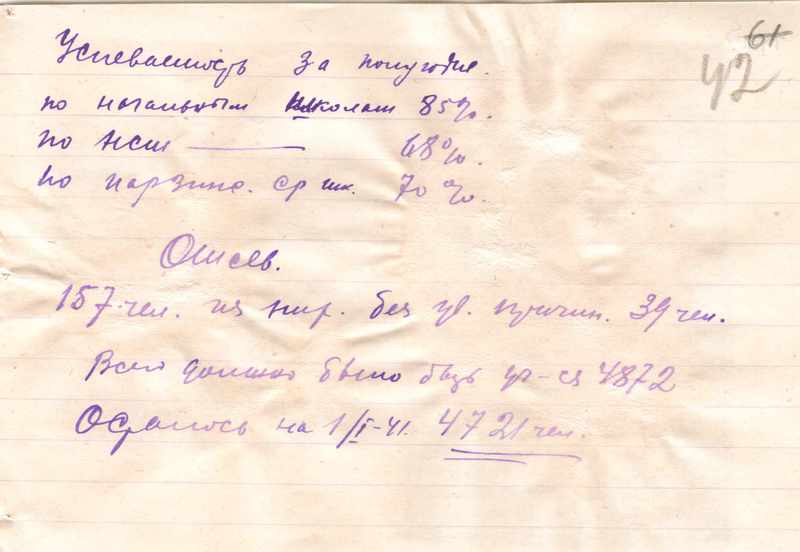 61
42
Успеваемость за полугодие.
по начальным школам 85%.
по НСШ — 68%.
по Парзинс. ср шк. 70%.
Отсев.
157 чел. из них. без ув. причин. 39 чел.
Всего должно было быть уч-ся 4872
Осталось на 1/I-41. 4721 чел.